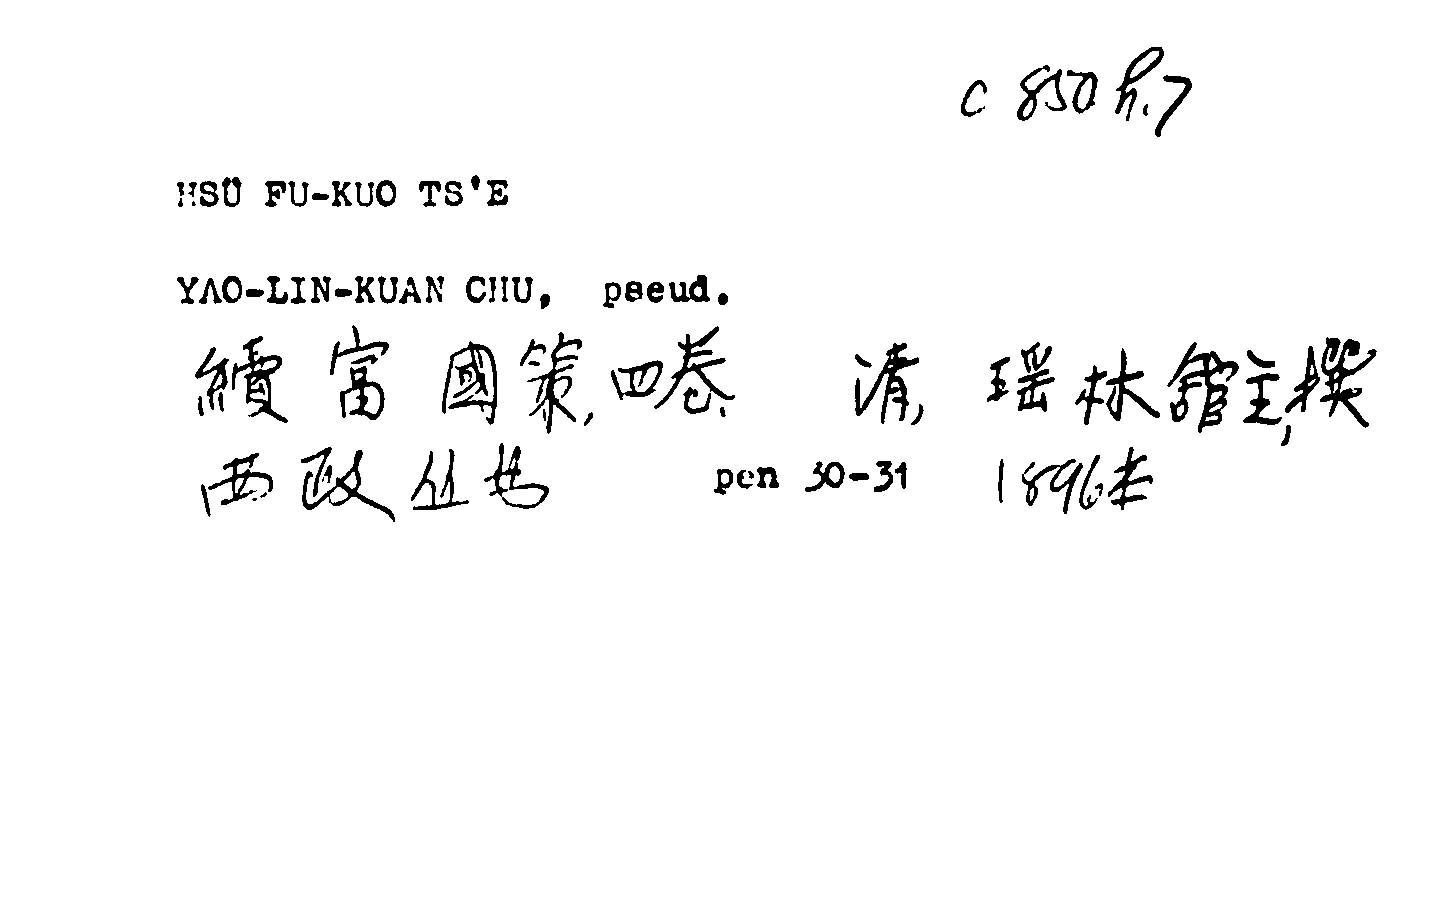 C 850 h.7
HSÜ FU-KUO TS'E
YAO-LIN-KUAN CHU, pseud.
續富國策,四卷. 清, 瑶林館主,撰
西政丛书 pen 30-31 1896年